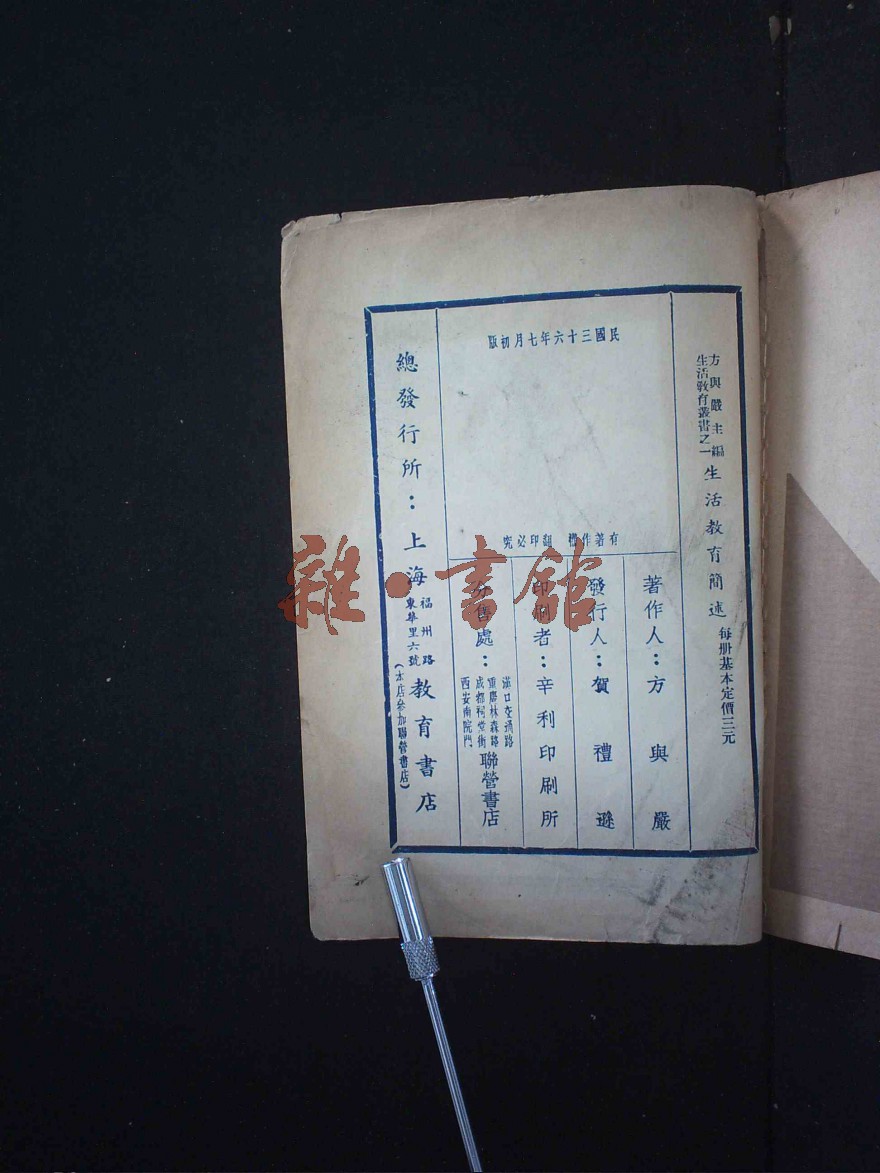 方與嚴主編
生活教育叢書之一
生活教育簡述
每册基本定價三元
民國三十六年七月初版
有著作權 翻印必究
著作人：方與嚴
發行人：賀禮遜
印刷者：辛利印刷所
分售處：
漢口交通路
重慶林森路
成都祠堂街
西安南院門
聯營書店
總發行所：上海
福州路
東華里六號
教育書店
（本店參加聯營書店）
雜·書館